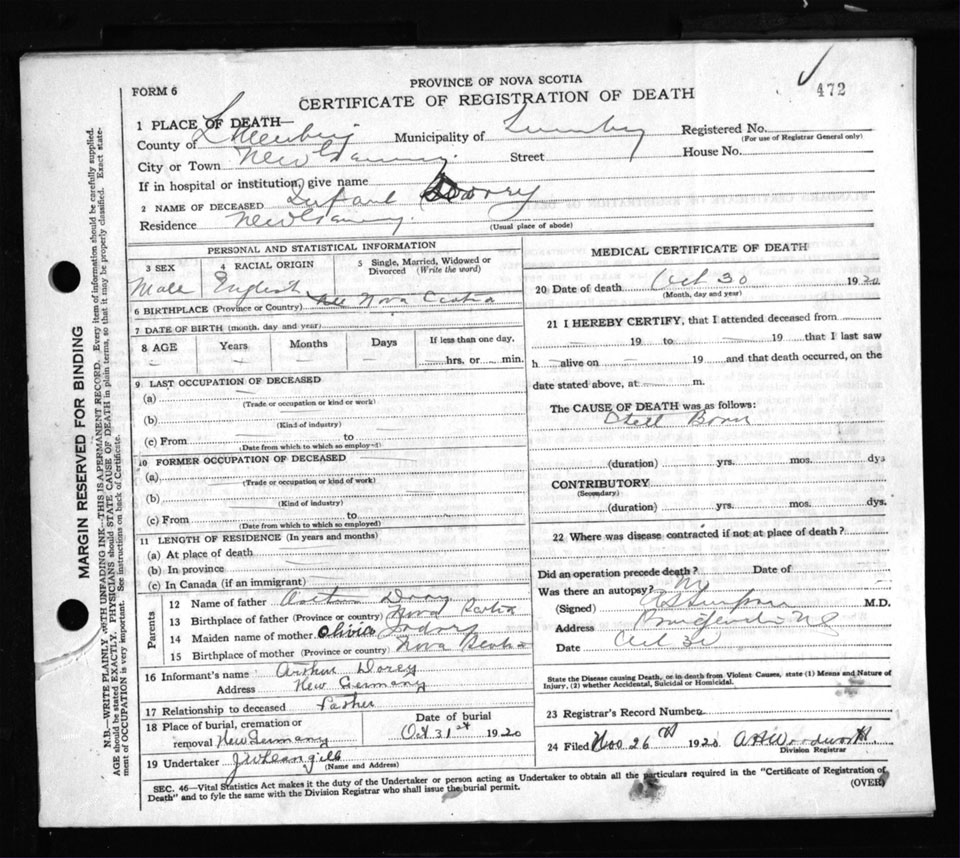 PROVINCE OF NOVA SCOTIA
FORM 6
CERTIFICATE OF REGISTRATION OF DEATH
472
1 PLACE OF DEATH—
County of Lunenburg Municipality of Lunenburg Registered No.
(For use of Registrar General only)
City or Town New Germany Street House No.
If in hospital or institution, give name
2 NAME OF DECEASED Infant Dorey
Residence New Germany
(Usual place of abode)
MARGIN RESERVED FOR BINDING
N.B.—WRITE PLAINLY WITH UNFADING INK—THIS IS A PERMANENT RECORD. Every item of information should be carefully supplied.
AGE should be stated EXACTLY. PHYSICIANS should STATE CAUSE OF DEATH in plain terms, so that it may be properly classified. Exact state-
ment of OCCUPATION is very important. See instructions on back of Certificate.
PERSONAL AND STATISTICAL INFORMATION
3 SEX 4 RACIAL ORIGIN 5 Single, Married, Widowed or
Divorced (Write the word)
Male English
6 BIRTHPLACE (Province or Country) Nova Scotia
7 DATE OF BIRTH (month, day and year)
8 AGE Years Months Days If less than one day,
hrs. or min.
9 LAST OCCUPATION OF DECEASED
(a)
(Trade or occupation or kind or work)
(b)
(Kind of industry)
(c) From to
(Date from which to which so employed)
10 FORMER OCCUPATION OF DECEASED
(a)
(Trade or occupation or kind of work)
(b)
(Kind of industry)
(c) From to
(Date from which to which so employed)
11 LENGTH OF RESIDENCE (In years and months)
(a) At place of death
(b) In province
(c) In Canada (if an immigrant)
Parents
12 Name of father Dorey
13 Birthplace of father (Province or country) Nova Scotia
14 Maiden name of mother Olivia
15 Birthplace of mother (Province or country) Nova Scotia
16 Informant's name Arthur Dorey
Address New Germany
17 Relationship to deceased Father
18 Place of burial, cremation or
removal New Germany
Date of burial
Oct 31st 1920
19 Undertaker
(Name and Address)
MEDICAL CERTIFICATE OF DEATH
20 Date of death Oct 30 1920
(Month, day and year)
21 I HEREBY CERTIFY, that I attended deceased from
19 to 19 that I last saw
h alive on 19 and that death occurred, on the
date stated above, at m.
The CAUSE OF DEATH was as follows:
Still Born
(duration) yrs. mos. dys
CONTRIBUTORY
(Secondary)
(duration) yrs. mos. dys.
22 Where was disease contracted if not at place of death?
Did an operation precede death? Date of
Was there an autopsy? No
(Signed) M.D.
Address
Date Oct 30
State the Disease causing Death, or in death from Violent Causes, state (1) Means and Nature of
Injury, (2) whether Accidental, Suicidal or Homicidal.
23 Registrar's Record Number
24 Filed Nov 26th 1920 Woodworth
Division Registrar
SEC. 46—Vital Statistics Act makes it the duty of the Undertaker or person acting as Undertaker to obtain all the particulars required in the "Certificate of Registration of
Death" and to fyle the same with the Division Registrar who shall issue the burial permit.
(OVER)